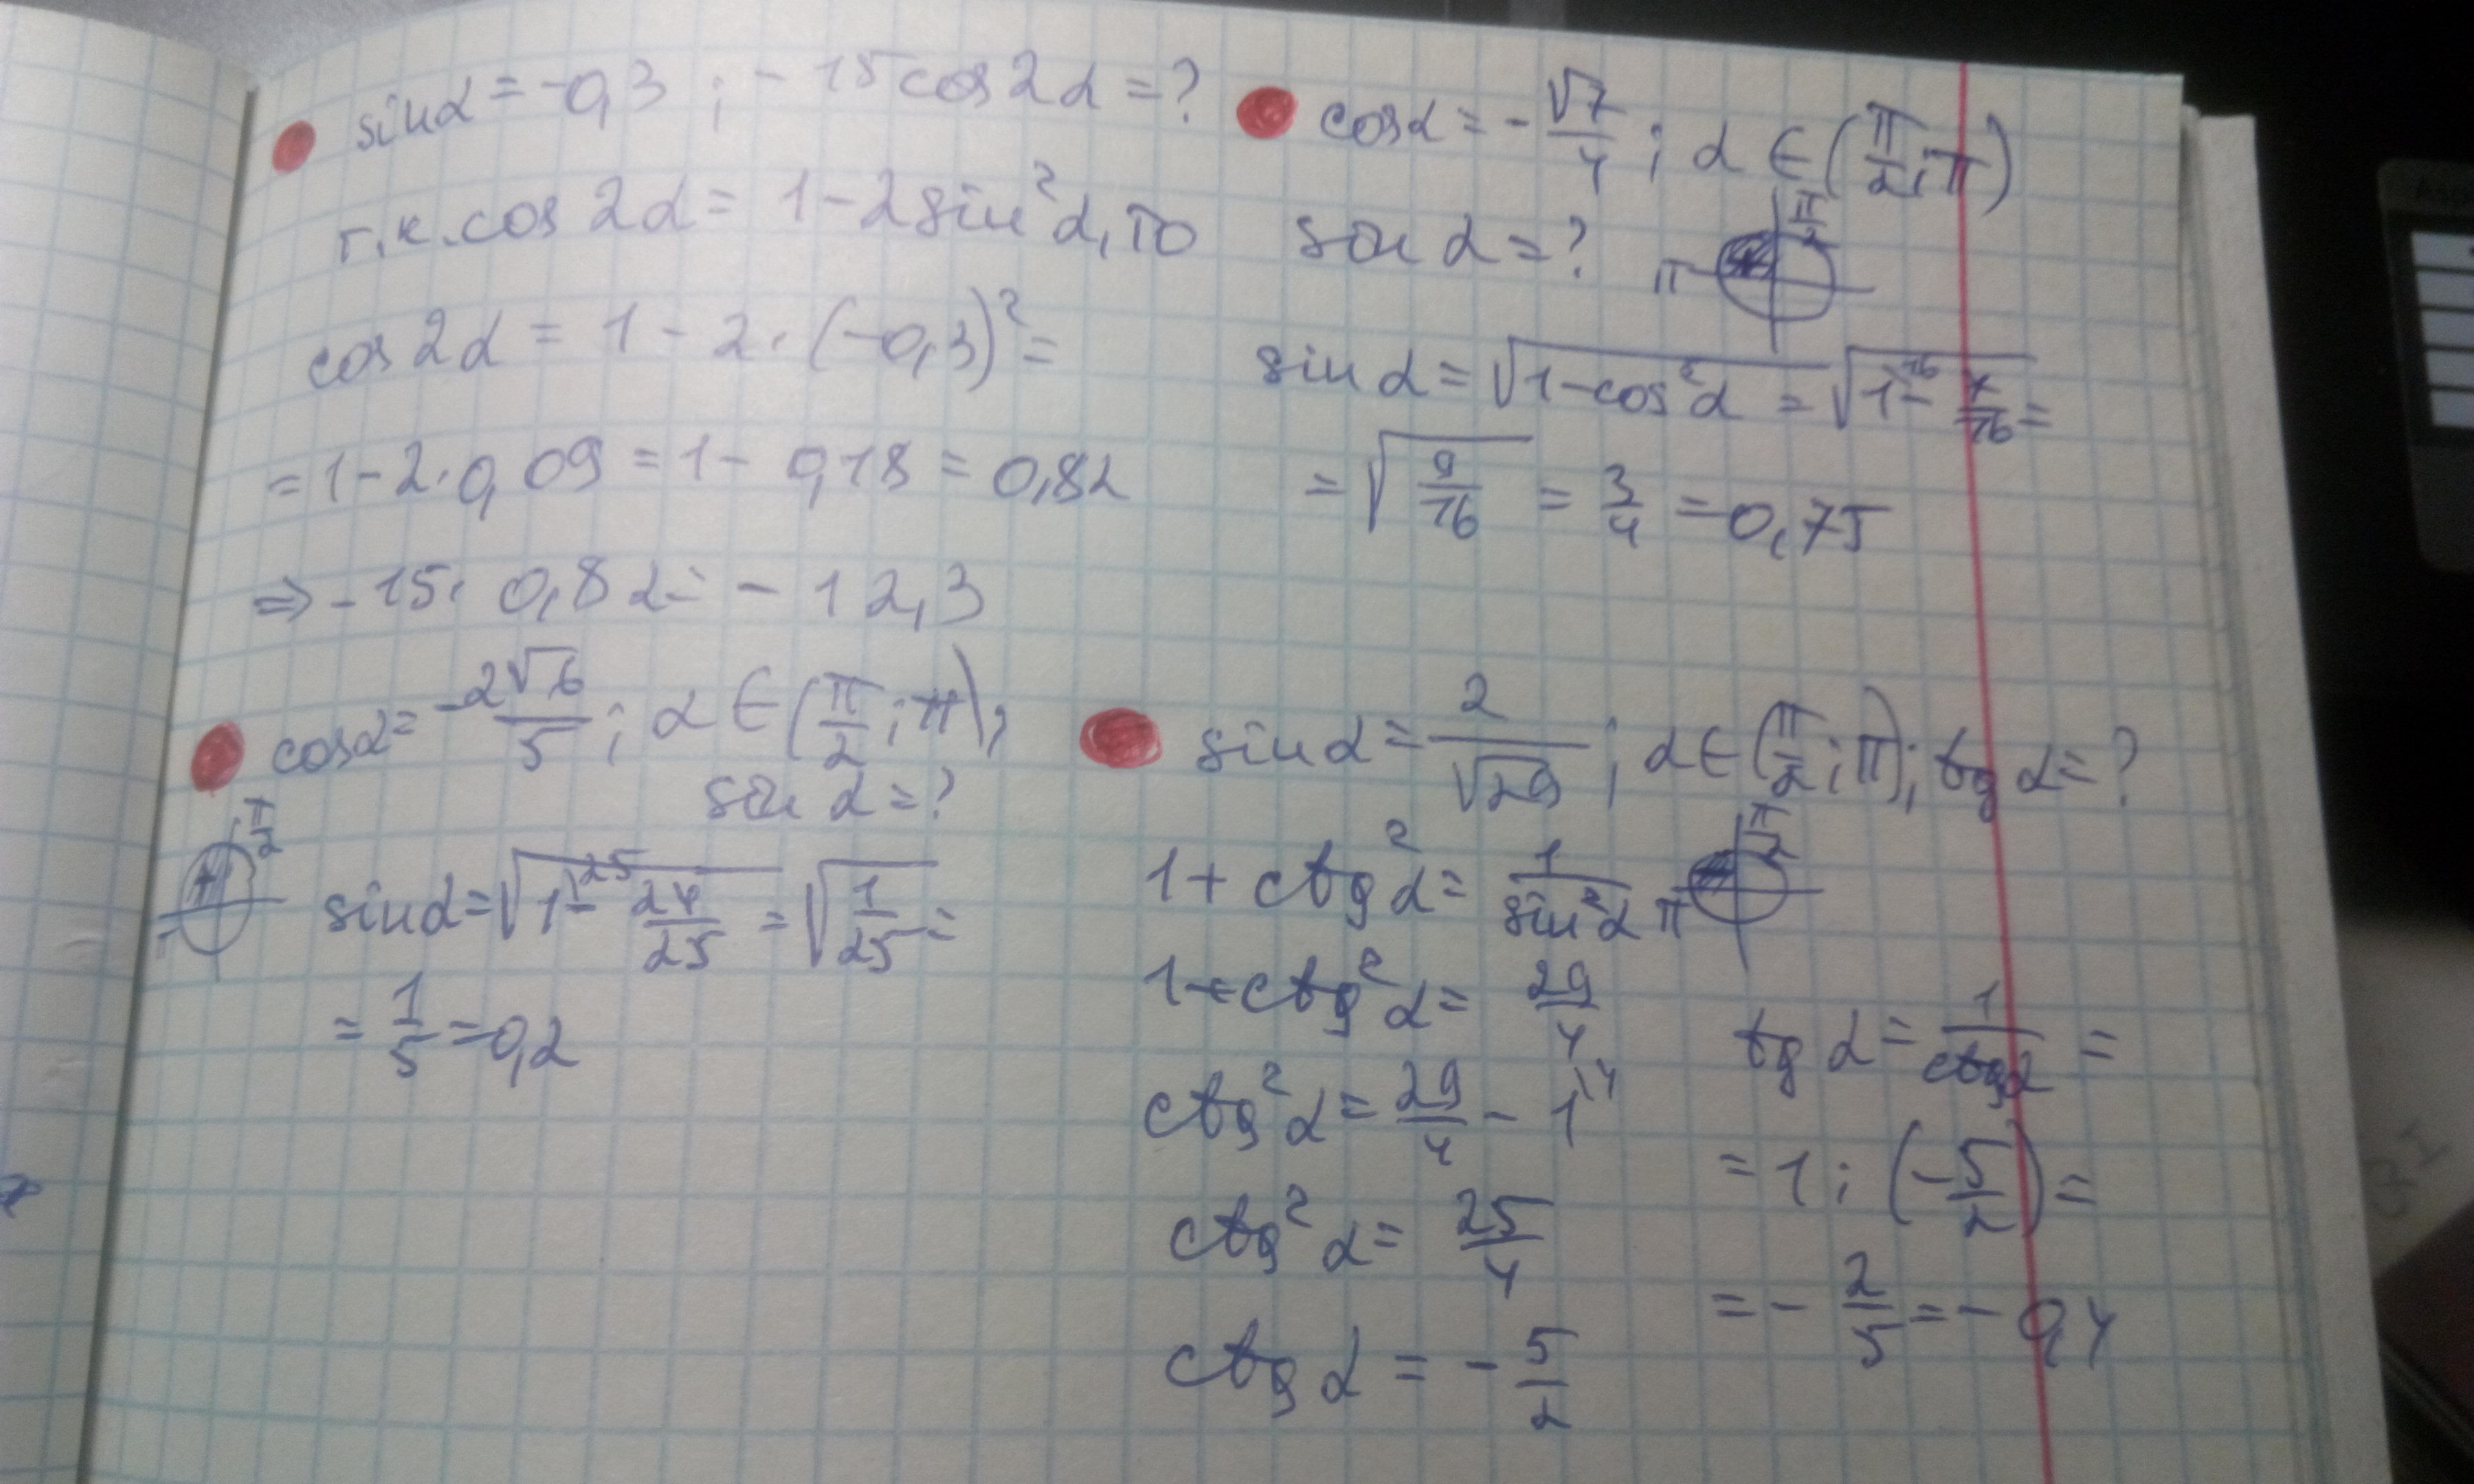 sinα = -0,3 ; -15cos2α = ?
т.к. cos 2α = 1 - 2sin²α, то
cos 2α = 1 - 2 · (-0,3)² =
= 1 - 2 · 0,09 = 1 - 0,18 = 0,82
⇒ -15 · 0,82 = -12,3
cosα = -2√6/5 ; α ∈ (π/2 ; π) ;
sin α = ?
π/2
+
sinα = √(1^{25} - 24/25) = √(1/25) =
= 1/5 = 0,2
cosα = -√7/4 ; α ∈ (π/2 ; π)
sin α = ?
π/2
π
sin α = √(1 - cos²α) = √(1^{16} - 7/16) =
= √(9/16) = 3/4 = 0,75
sin α = 2/√29 ; α ∈ (π/2 ; π) ; tg α = ?
1 + ctg²α = 1/sin²α
π/2
π
1 + ctg²α = 29/4
ctg²α = 29/4 - 1^{4}
ctg²α = 25/4
ctg α = -5/2
tg α = 1/ctgα =
= 1 : (-5/2) =
= -2/5 = -0,4